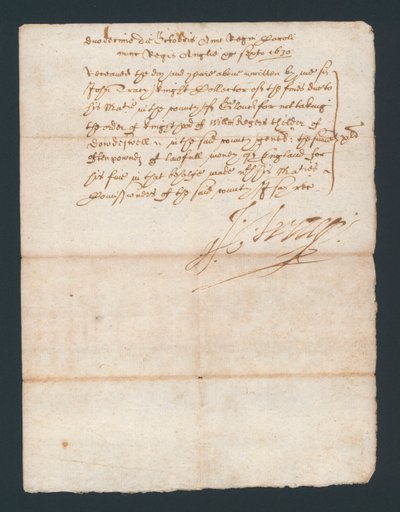 duodecimo die Octobris Anno Regni Caroli
nunc Regis Anglie &c Sexto 1630
Receaved the day and yeare above written by me Sr
John Tracy Knight Collector of the fines due to
his Matie in the county of Glouc for not taking
the order of Knighthood of Willm Rogers thelder of
Dowdeswell in the said county gent the summe
of ten pownds of lawfull money of England for
his fine in that behalfe made wth his Maties
Comissioners of the said county I say rec
Jo: Tracy